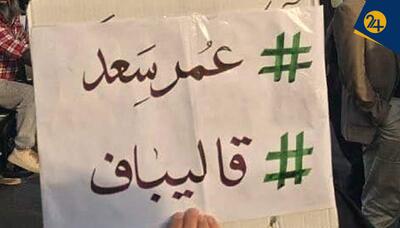 # عُمر سَعَد
# قالیباف
۲۴